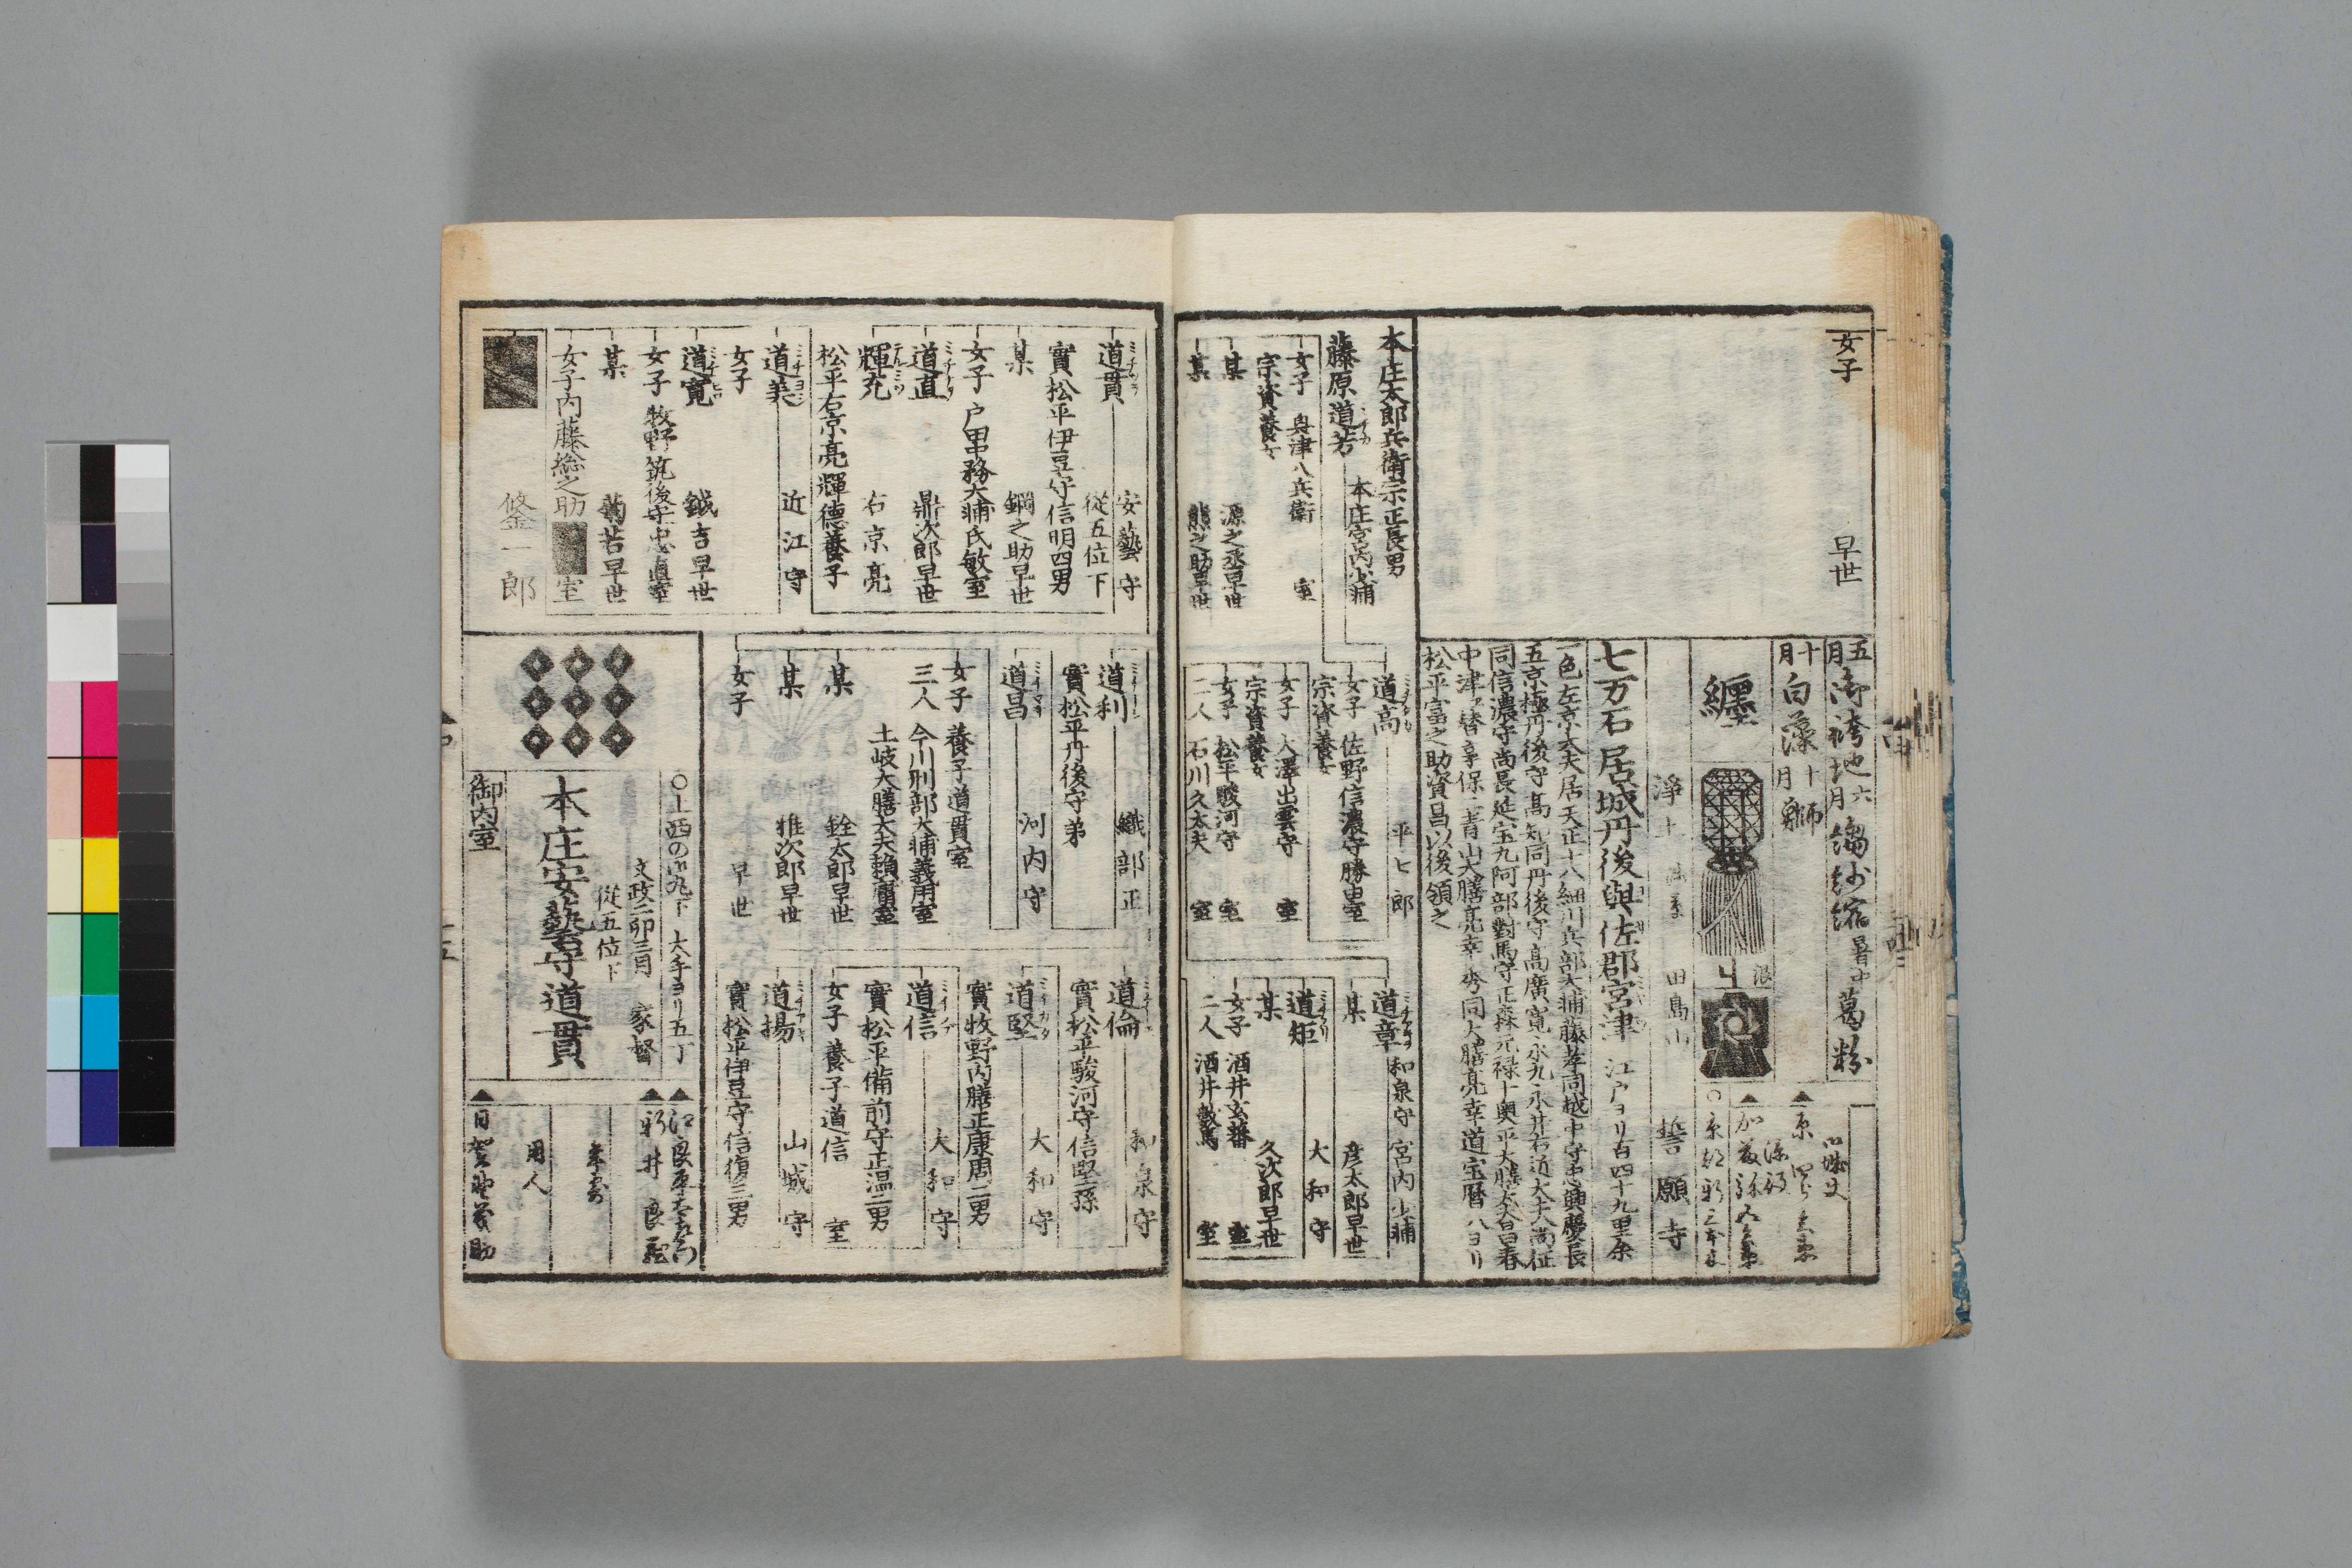 女子 早世
五月
十月 白藻
纏
淨土
誓願寺
七万石 居城丹後與佐郡宮津 江戸ヨリ百四十九里余
一色左京大夫居天正十八細川兵部大浦藤孝同越中守忠興慶長
五京極丹後守髙知同丹後守高廣寛永九永井右近大夫尚征
同信濃守尚長延宝九阿部對馬守正森元禄十奥平大膳大夫昌春
中津ヘ替享保二青山大膳亮幸秀同大膳亮幸道宝暦八ヨリ
松平富之助資昌以後領之
本庄太郎兵衛宗正長男
藤原道芳 本庄宮内少浦
女子 奥津八兵衛 室
宗資養女
某 源之丞早世
某 熊之助早世
道高 平七郎
女子 佐野信濃守勝由室
宗資養女
女子 大澤出雲守 室
宗資養女
女子 松平駿河守 室
二人 石川久太夫 室
道章 和泉守 宮内少浦
某 彦太郎早世
道矩 大和守
某 久次郎早世
女子 酒井玄蕃 室
二人 酒井數馬 室
道貫 安藝守
從五位下
實松平伊豆守信明四男
某 鋼之助早世
女子 戸田中務大浦氏敏室
道直 鼎次郎早世
輝充 右京亮
松平右京亮輝徳養子
道美 近江守
女子
道寛 鉞吉早世
女子 牧野筑後守忠直室
某 菊若早世
女子 内藤総之助 室
鋻一郎
道利 織部正
實松平丹後守弟
道昌 河内守
女子 養子道貫室
三人 今川刑部大浦義用室
土岐大膳大夫頼寛室
某 銓太郎早世
某 推次郎早世
女子 早世
道倫 和泉守
實松平駿河守信堅孫
道堅 大和守
實牧野内膳正康周二男
道信 大和守
實松平備前守正温二男
女子 養子道信 室
道揚 山城守
實松平伊豆守信復三男
〇上 西の御丸下 大手ヨリ五丁
文政二卯三月 家督
從五位下
本庄安藝守道貫
御内室
新井良
用人